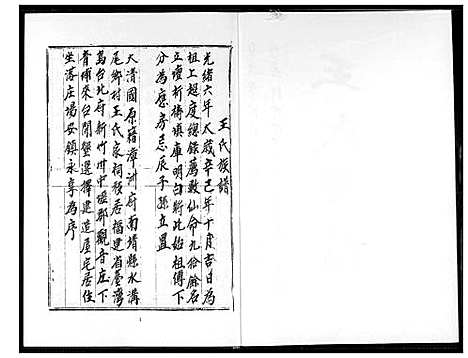 王氏族譜
光緒六年太歲辛巳年十月吉日為
祖上超度緣錄薦數仙命九位餘名
立壇祈禱填庫明白將此始祖傳下
分為應房忌辰子孫立置
大清國原籍漳洲府南靖縣水溝
尾鄉村王氏家祠移居福建省臺灣
島台北府新竹州中壢郡觀音庄下
青埔來台開墾選擇建造屋宅居住
坐落庄場安鎮永享為序